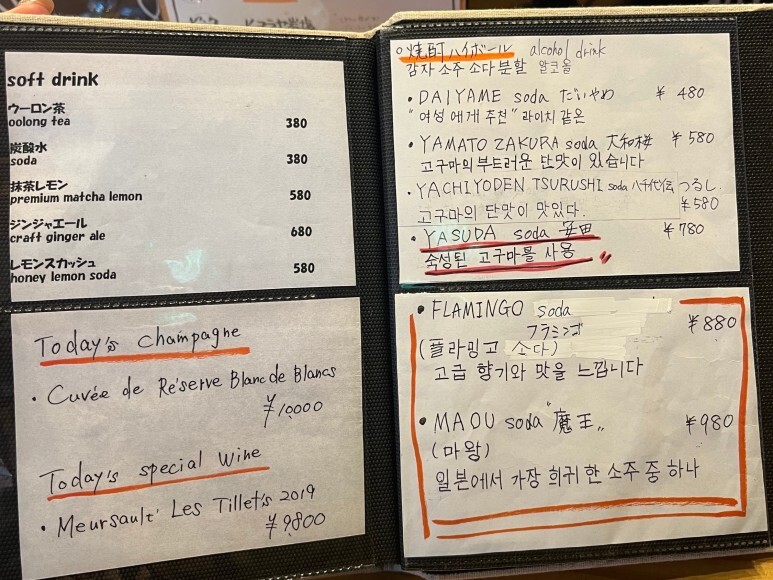 soft drink
ウーロン茶
oolong tea 380
炭酸水
soda 380
抹茶レモン
premium matcha lemon 580
ジンジャエール
craft ginger ale 680
レモンスカッシュ
honey lemon soda 580
Today's champagne
・Cuvée de Réserve Blanc de Blancs
¥10,000
Today's special wine
・Meursault Les Tillets 2019
¥9,800
○焼酎ハイボール alcohol drink
감자 소주 소다 분할 알코올
・DAIYAME soda だいやめ ¥480
"여성에게 추천" 라이치 같은
・YAMATO ZAKURA soda 大和桜 ¥580
고구마의 부드러운 단맛이 있습니다
・YACHIYODEN TSURUSHI soda 八千代伝 つるし
고구마의 단맛이 맛있다. ¥580
・YASUDA soda 安田 ¥780
숙성된 고구마를 사용
・FLAMINGO soda ¥880
フラミンゴ
(플라밍고 소다)
고급 향기와 맛을 느낍니다
・MAOU soda "魔王" ¥980
(마왕)
일본에서 가장 희귀 한 소주 중 하나